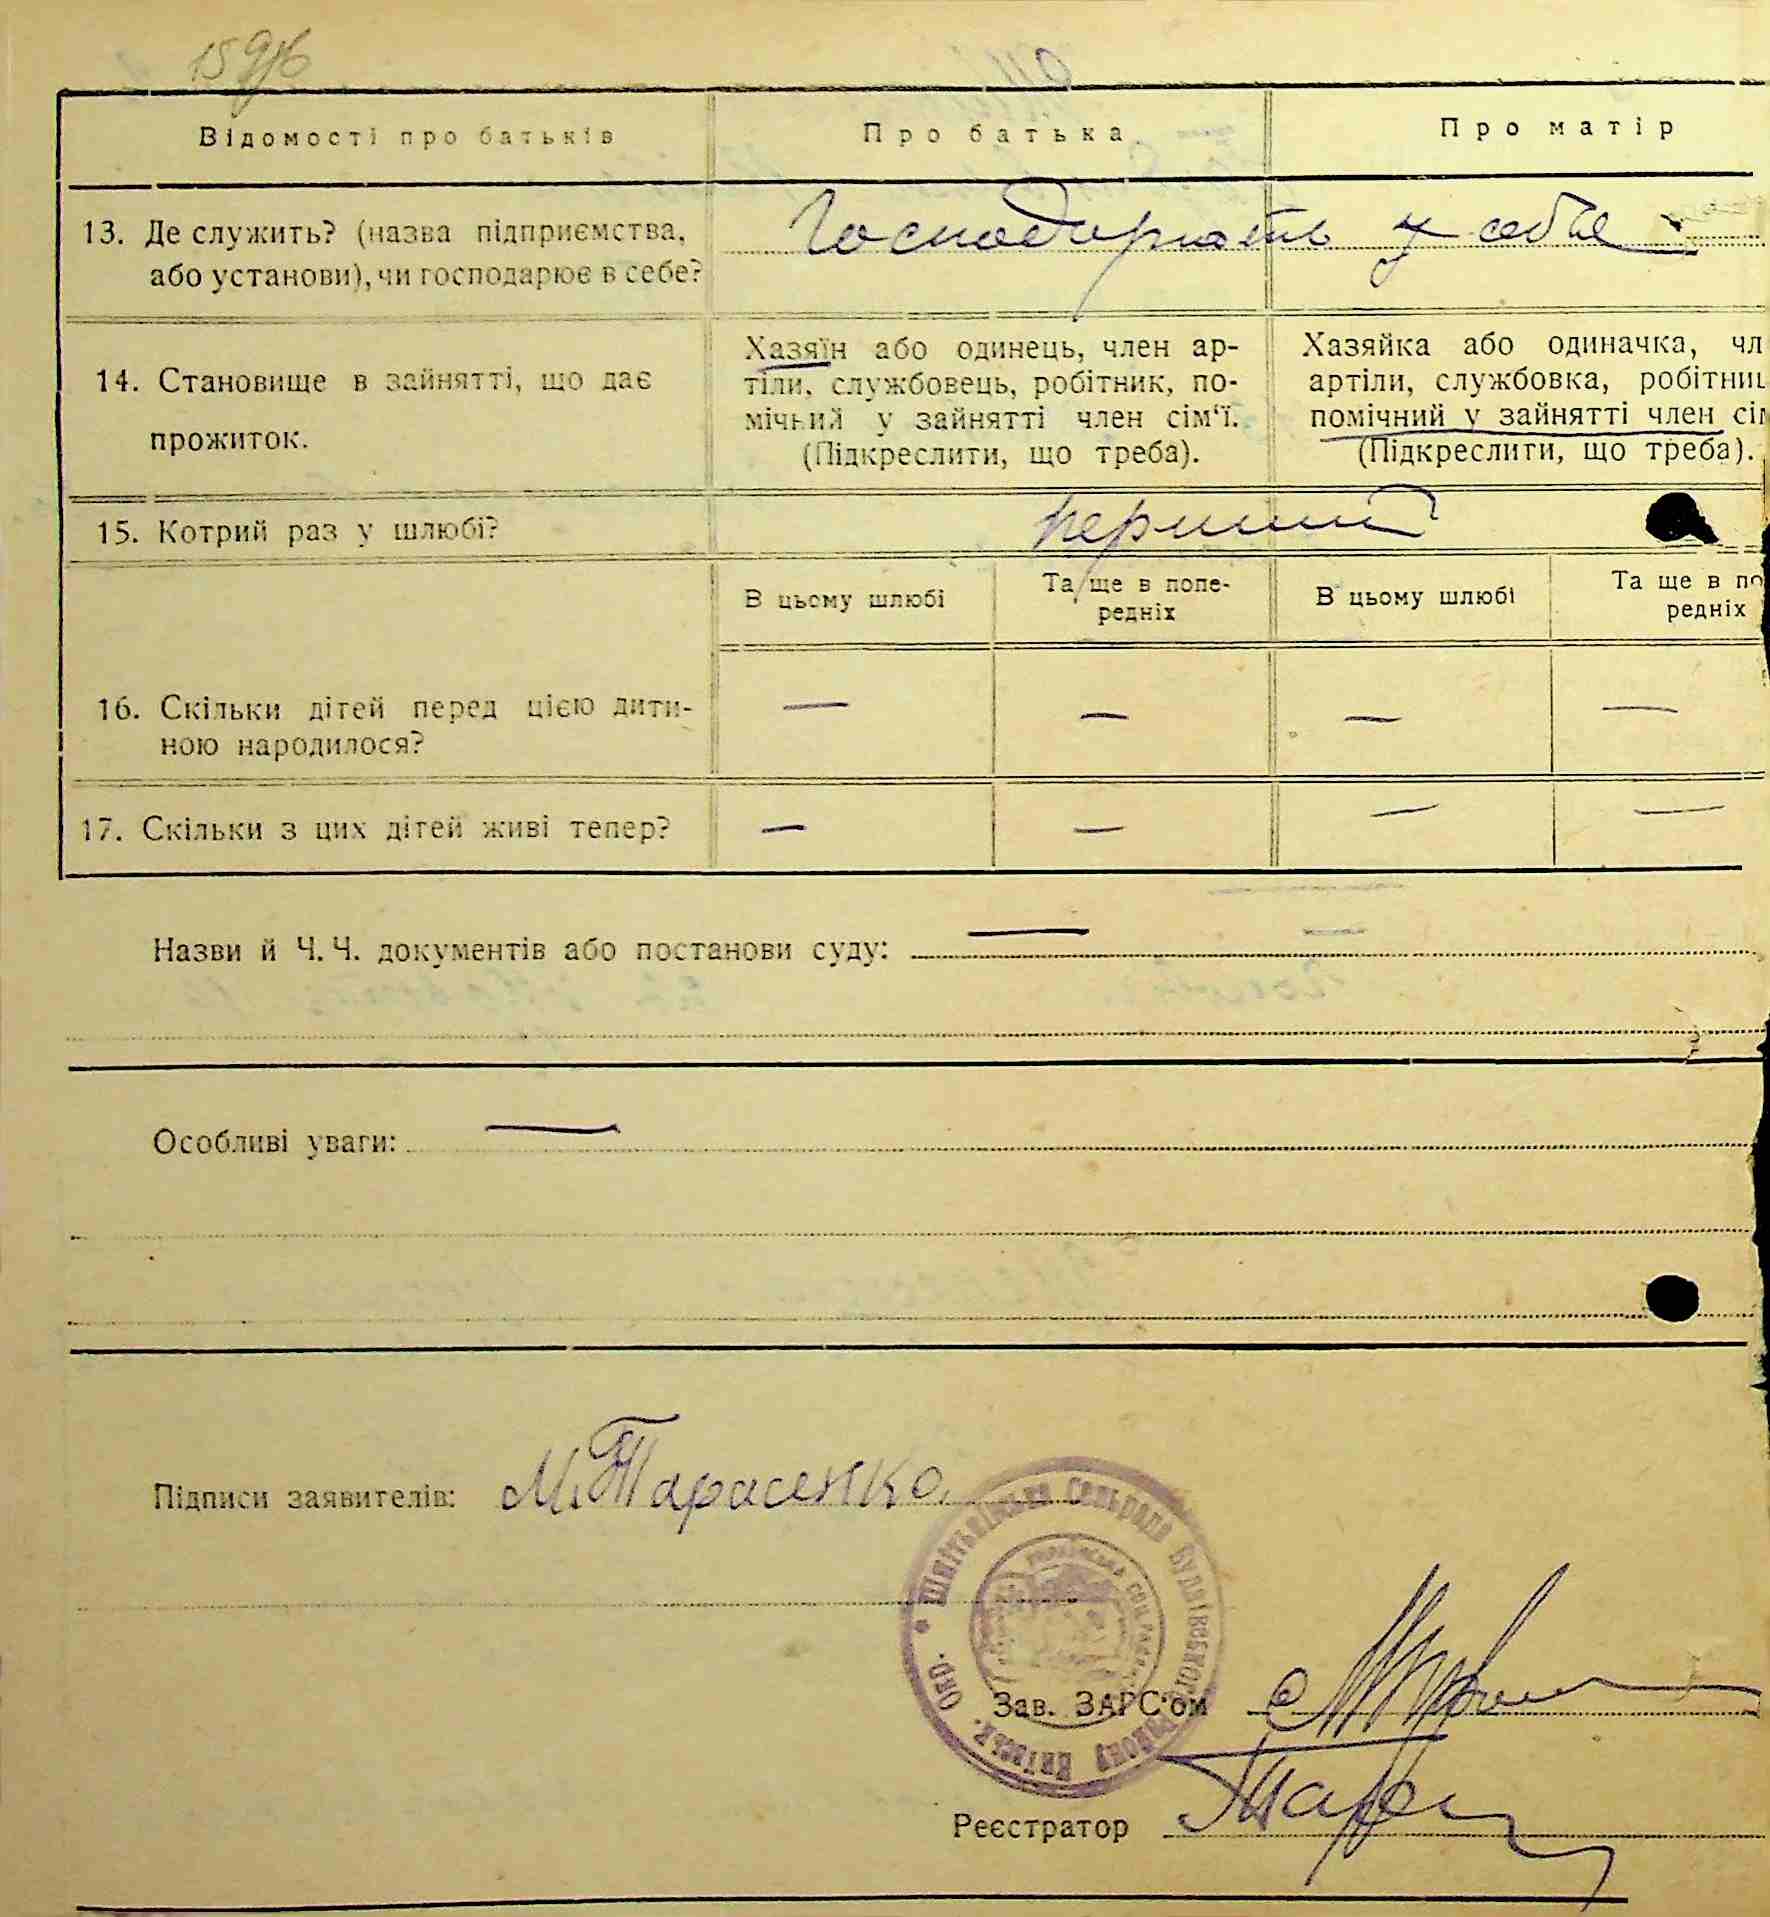 Відомості про батьків
Про батька
Про матір
13. Де служить? (назва підприємства,
або установи), чи господарює в себе?
Господарюють у себе
14. Становище в зайнятті, що дає
прожиток.
Хазяїн або одинець, член ар-
тіли, службовець, робітник, по-
мічний у зайнятті член сім'ї.
(Підкреслити, що треба).
Хазяйка або одиначка, чл
артіли, службовка, робітниц
помічний у зайнятті член сім
(Підкреслити, що треба).
15. Котрий раз у шлюбі?
перший
В цьому шлюбі
Та ще в попе-
редніх
В цьому шлюбі
Та ще в по
редніх
16. Скільки дітей перед цією дити-
ною народилося?
— — — —
17. Скільки з цих дітей живі тепер?
— — — —
Назви й Ч. Ч. документів або постанови суду: —
Особливі уваги: —
Підписи заявителів: М. Тарасенко
Шпітьківська Сельрада Будаївського району Київськ. Окр.
Зав. ЗАРС'ом
Реєстратор